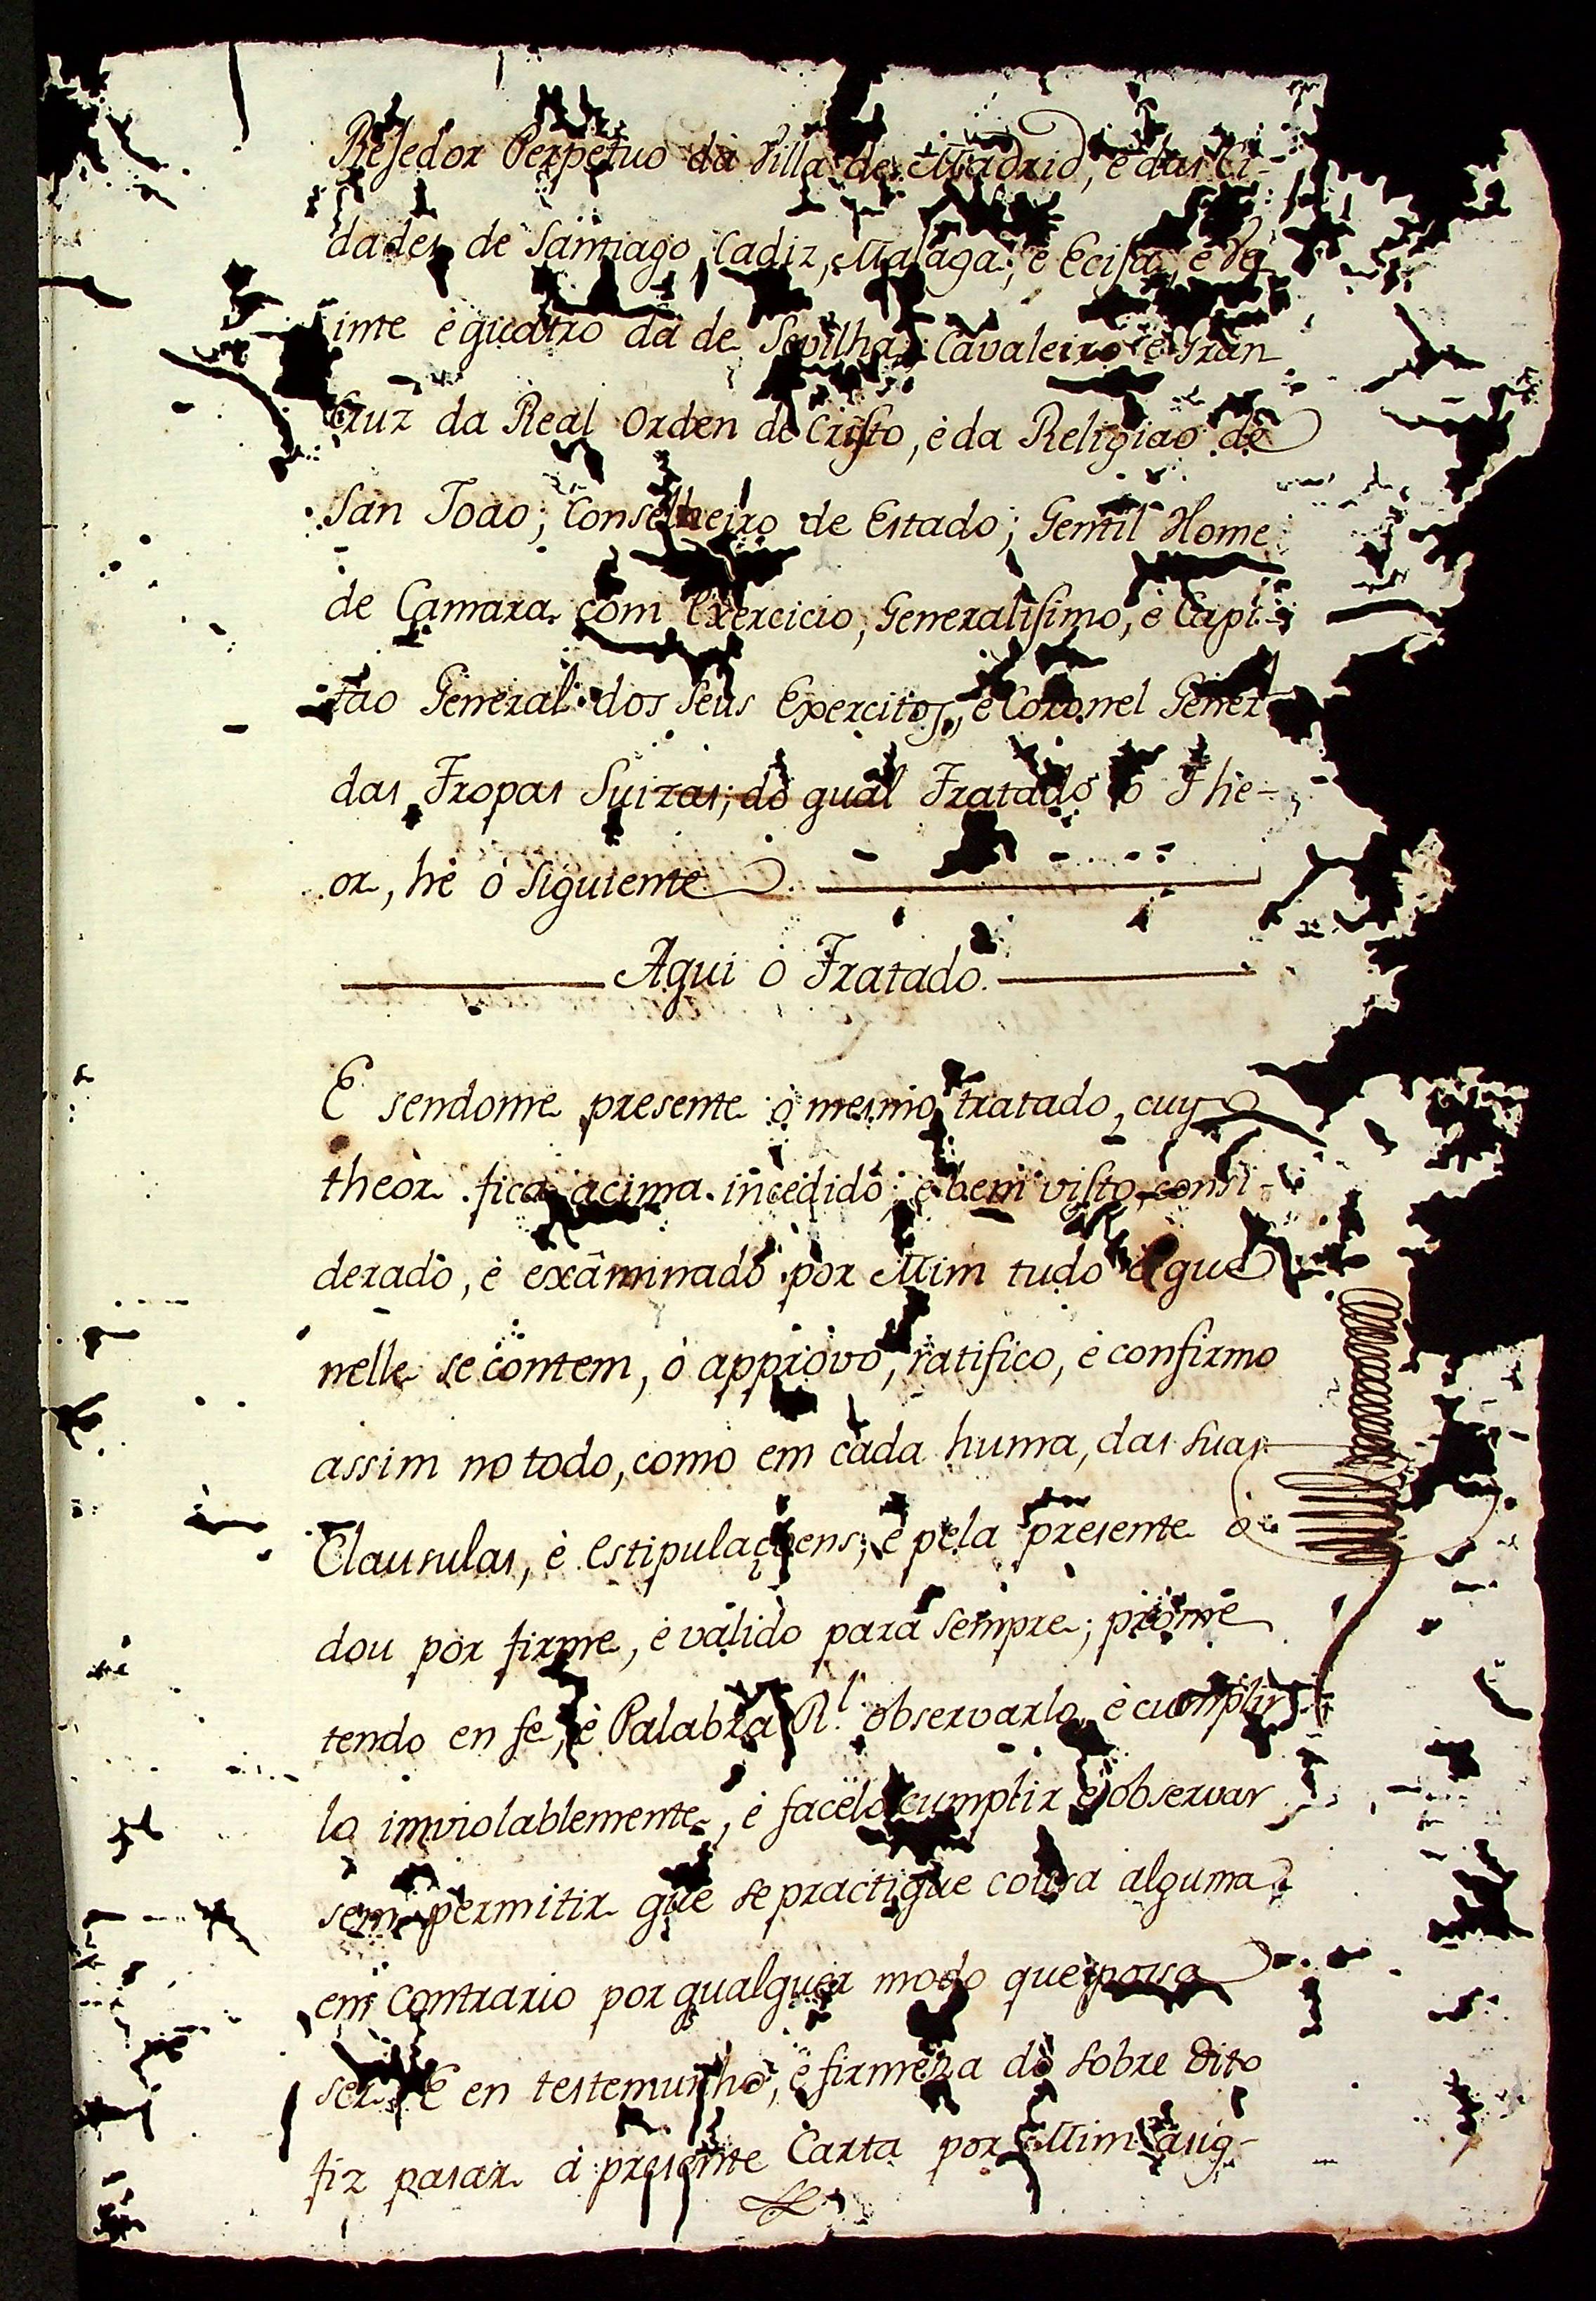 Rejedor Perpetuo da Villa de Madrid, è das Ci-
dades de Santiago, Cadiz, Malaga, e Ecija, e Ve
inte è quatro da de Sevilha; Cavaleiro è Gran
Cruz da Real Orden de Cristo, è da Religiao de
San Joao; Conselheiro de Estado; Gentil Home
de Camara com Exercicio, Generalisimo, è Capi-
tao General dos Seus Exercitos, è Coronel Gener
das Tropas Suizas; do qual Tratado o The-
or, hè ò Siguiente
Aqui ò Tratado.
E sendome presente o mesmo tratado, cuyo
theor fica acima incedido; e bem visto, consi-
derado, è exâminado por Mim tudo o que
nelle se contem, ò approvo, ratifico, è confirmo
assim no todo, como em cada huma, das suas
Clausulas, è estipulaçoens; è pela presente ò
dou por firme, è valido para sempre; prome
tendo en fe, è Palabra Rl. observarlo, è cumplir
lo inviolablemente, è facelo cumplir è observar
sem permitir que se practique cousa alguma
em contrario por qualquer modo que possa
ser. E en testemunho, è firmeza do sobre dito
fiz pasar à presente Carta por Mim asig-